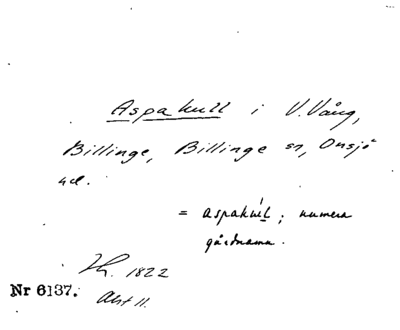 Aspakull i V. Vång,
Billinge, Billinge sn, Onsjö
hd.
= aspakúl; numera
gårdnamn.
1822
Nr 6137. Akt 11.